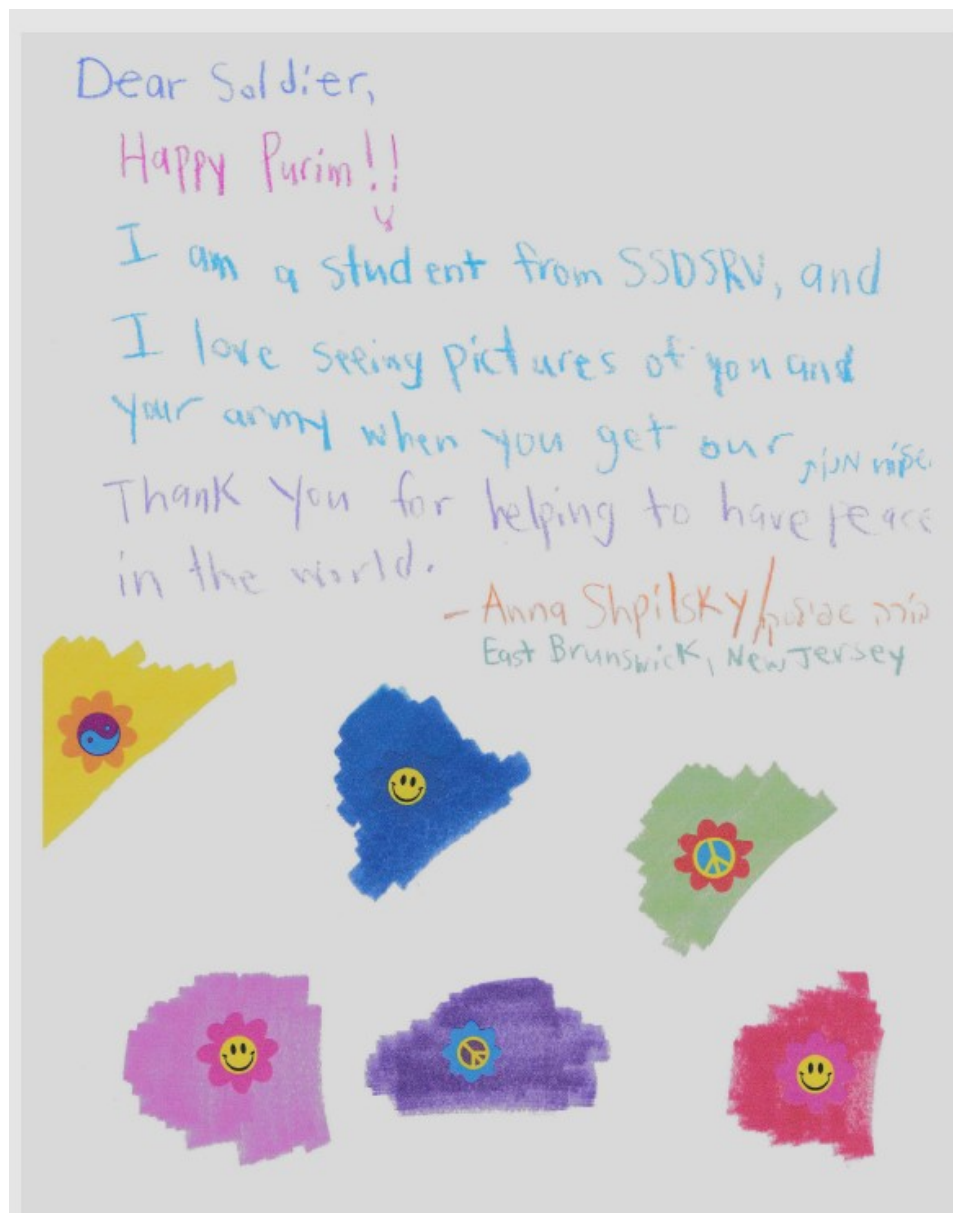 Dear Soldier,
Happy Purim!!
I am a student from SSDSRV, and
I love seeing pictures of you and
your army when you get our משלוח מנות.
Thank You for helping to have peace
in the world.
- Anna Shpilsky/
East Brunswick, New Jersey